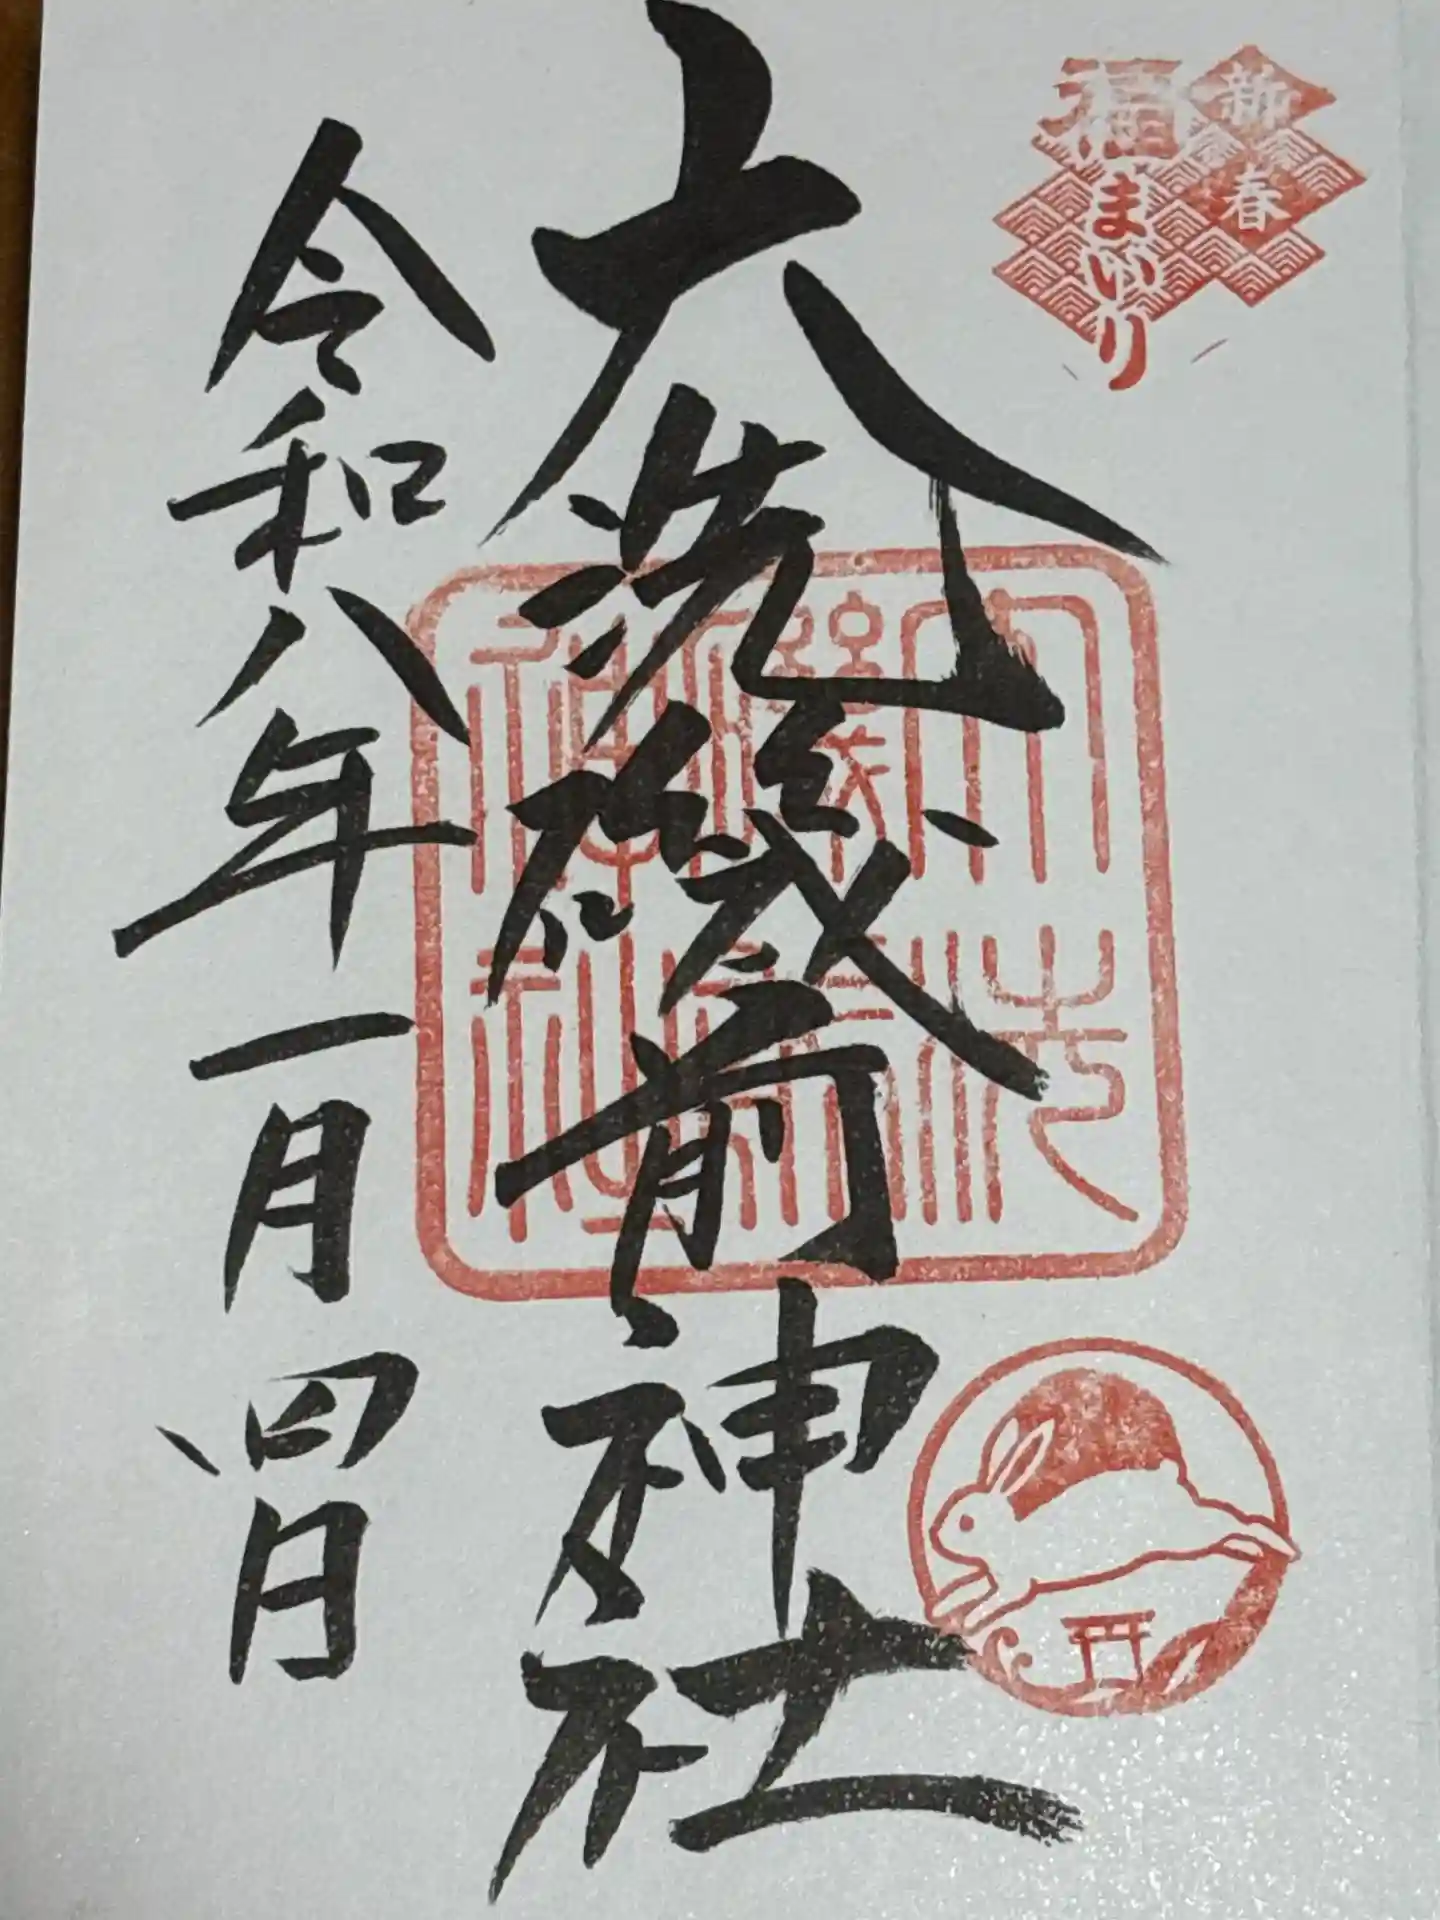 新春
福まいり
大洗磯前神社
大洗
磯前
神社
令和八年一月四日